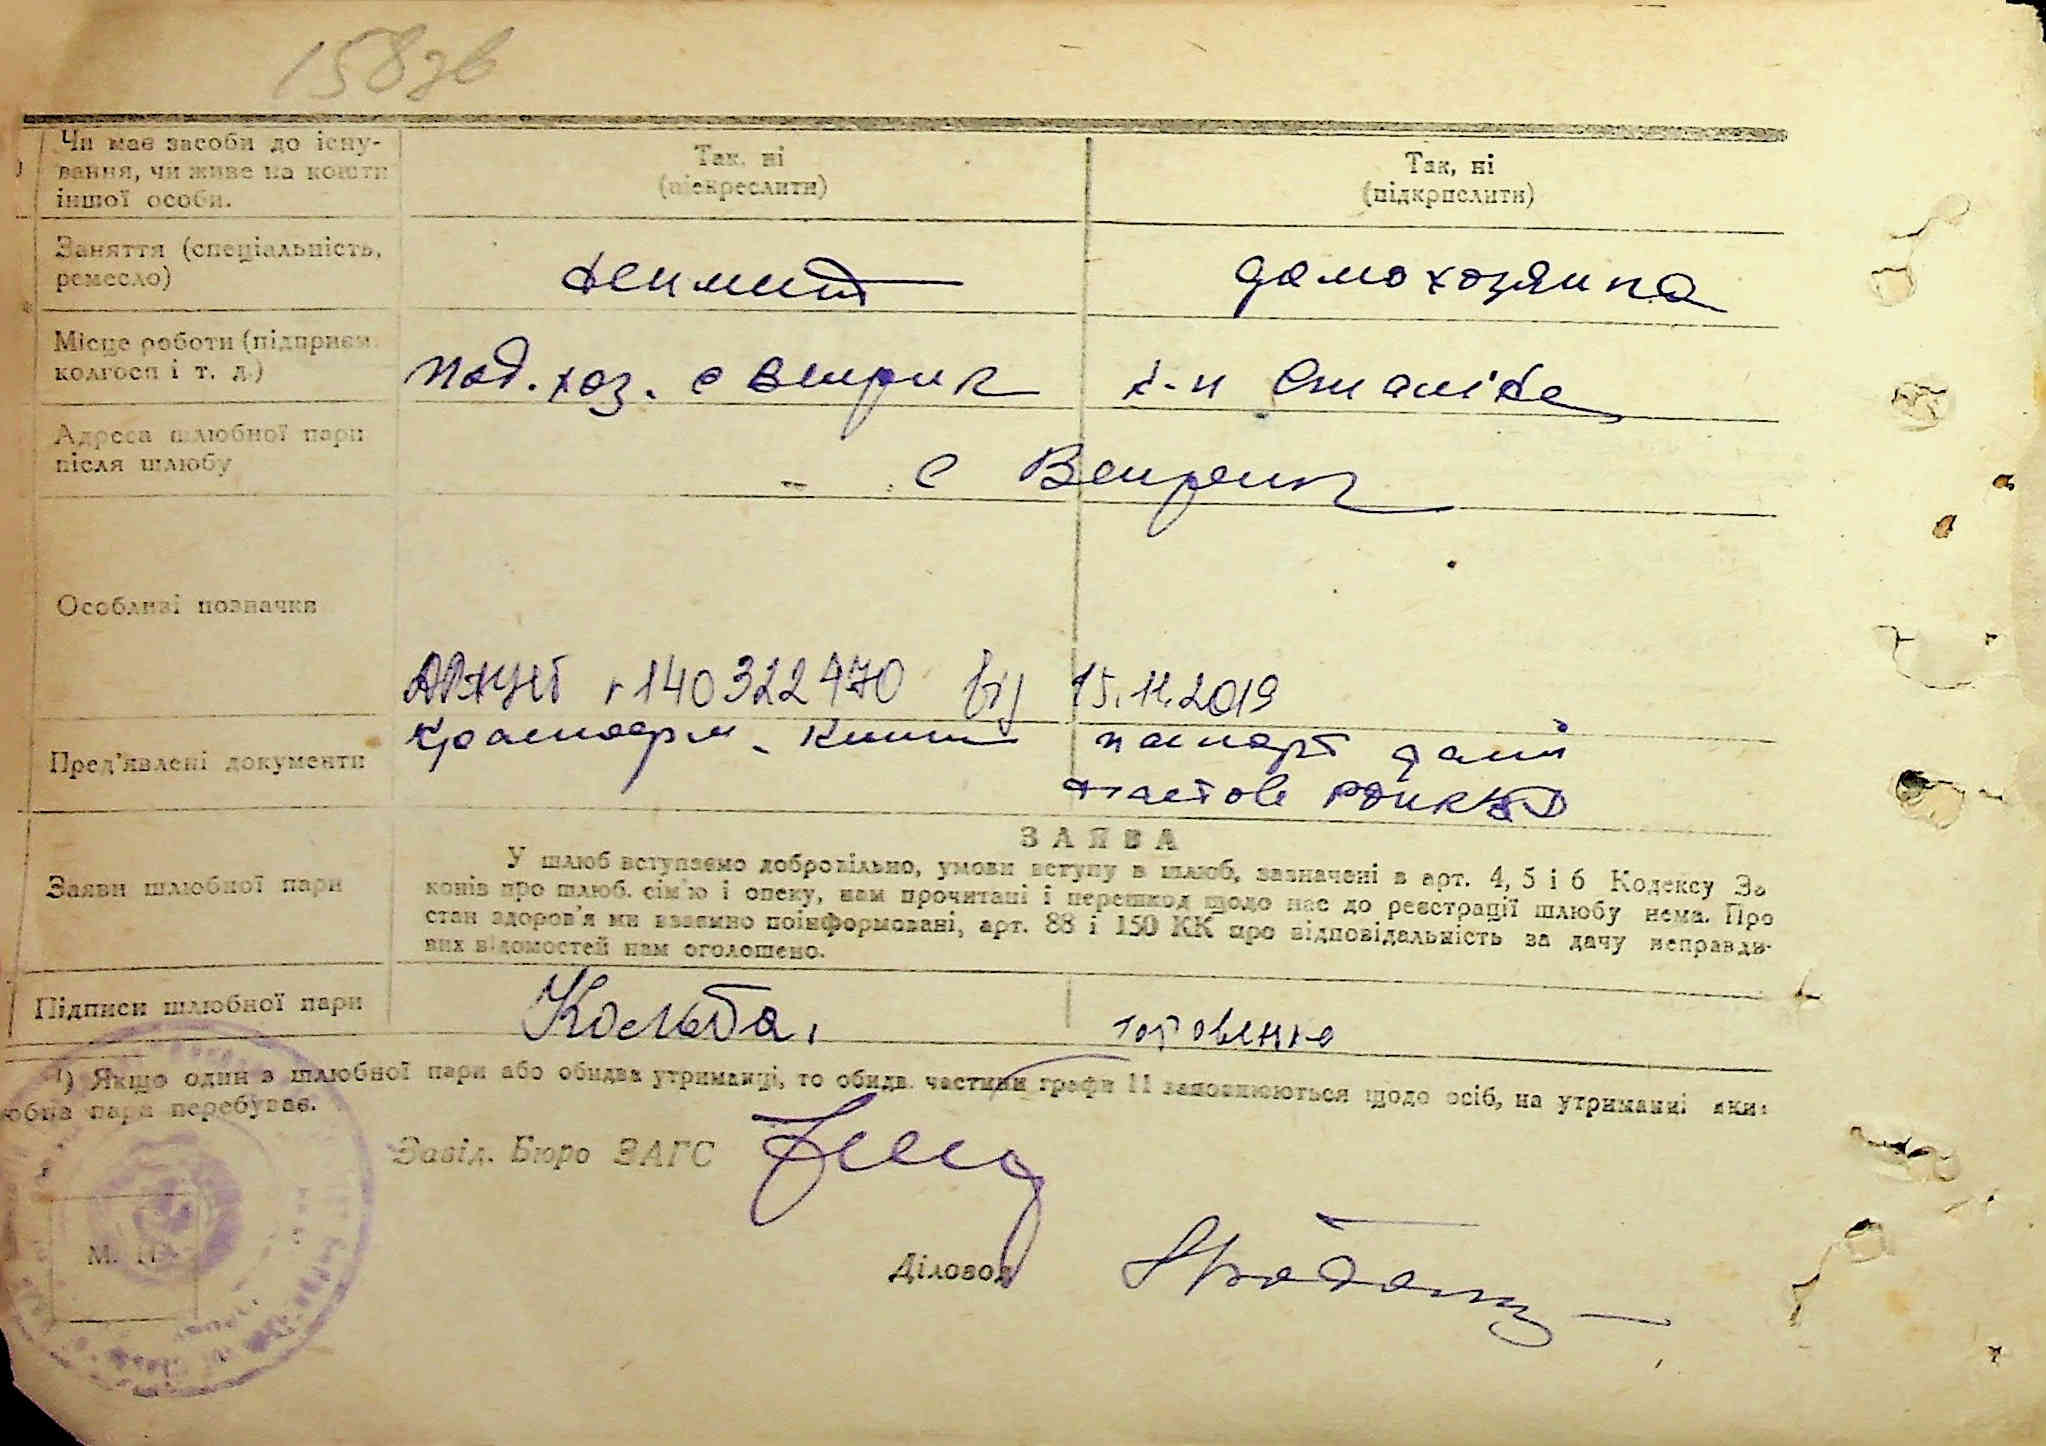 158зв
Чи має засоби до існу-
вання, чи живе на кошти
іншої особи.
Так, ні
(підкреслити)
Так, ні
(підкреслити)
Заняття (спеціальність,
ремесло)
домохозяйка
Місце роботи (підприєм.
колгосп і т. д.)
Под. хоз. с Веприк
к-п Сталіна
Адреса шлюбної пари
після шлюбу
с Веприк
Особливі позначки
ДРАЦСГ 140322470 від 15.11.2019
Пред'явлені документи
Красноарм. книжк
паспорт даний
РОНКВД
Заяви шлюбної пари
ЗАЯВА
У шлюб вступаємо добровільно, умови вступу в шлюб, зазначені в арт. 4, 5 і 6 Кодексу За
конів про шлюб. сім'ю і опеку, нам прочитані і перешкод щодо нас до реєстрації шлюбу нема. Про
стан здоров'я ми взаємно поінформовані, арт. 88 і 150 КК про відповідальність за дачу неправди-
вих відомостей нам оголошено.
Підписи шлюбної пари
Кольба
¹) Якщо один з шлюбної пари або обидва утриманці, то обидв. частини графи 11 заповнюються щодо осіб, на утриманні яких
юбна пара перебуває.
Завід. Бюро ЗАГС
М. П.
Діловод